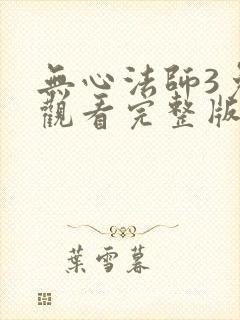 無心法師3
觀看完整版
葉雪暮